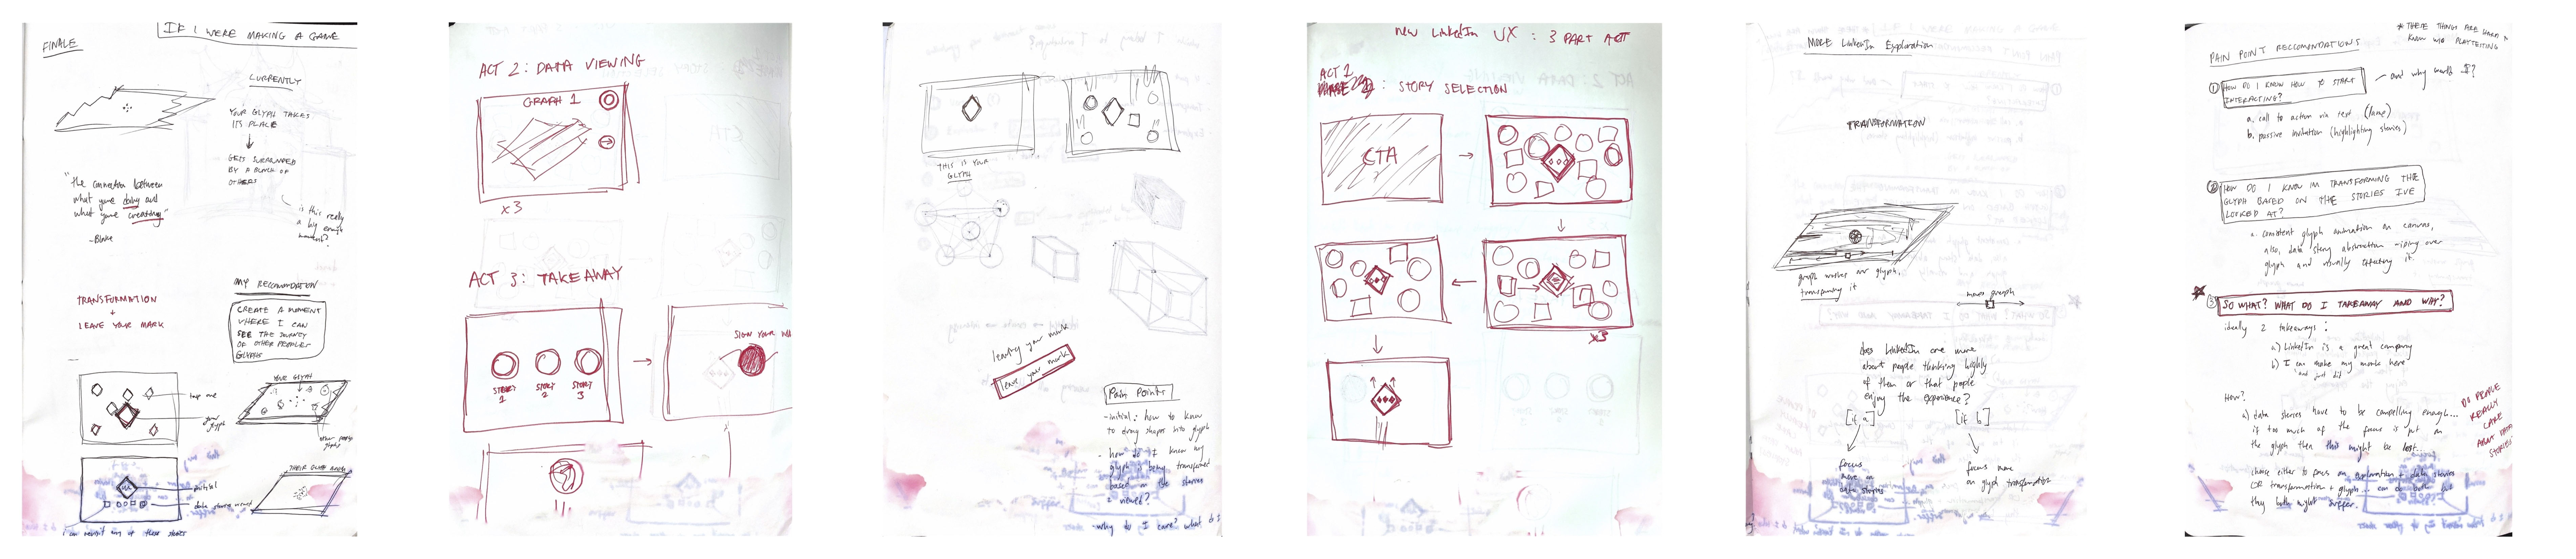 IF I WERE MAKING A GAME
FINALE
CURRENTLY
YOUR GLYPH TAKES
ITS PLACE
GETS SURROUNDED
BY A BUNCH OF
OTHERS
"the connection between
what you're doing and
what you're creating"
-Blake
is this really
a big enough
moment?
TRANSFORMATION
+
LEAVE YOUR MARK
MY RECCOMENDATION
CREATE A MOMENT
WHERE I CAN
SEE THE JOURNEY
OF OTHER PEOPLES
GLYPHS
tap one
your
glyph
YOUR GLYPH
other peoples
glyphs
data stories viewed
I can revisit any of these stories
ACT 2: DATA VIEWING
GRAPH 1
x3
ACT 3: TAKEAWAY
STORY
1
STORY
2
STORY
3
THIS IS YOUR
GLYPH
leaving your mark
leave your mark
Pain Points
-initial: how to know
to drag shapes into glyph
- how do I know my
glyph is being transformed
based on the stories
I viewed?
-why do I care? what do I
New LinkedIn UX : 3 PART ACT
ACT 1
: STORY SELECTION
CTA
x3
MORE LinkedIn Exploration
TRANSFORMATION
graph washes over glyph,
transforming it
move graph
does LinkedIn care more
about people thinking highly
of them or that people
enjoy the experience?
[if a]
[if b]
focus
more on
data stories
focus more
on glyph transformation
* THESE THINGS ARE HARD to
KNOW W/O PLAYTESTING
PAIN POINT RECCOMENDATIONS
① HOW DO I KNOW HOW TO START
INTERACTING?
and why would I?
a. call to action via text (lame)
b. passive invitation (highlighting stories)
② HOW DO I KNOW I'M TRANSFORMING THE
GLYPH BASED ON THE STORIES I'VE
LOOKED AT?
a. consistent glyph animation on canvas,
also, data story abstraction wiping over
glyph and visually effecting it
③ SO WHAT? WHAT DO I TAKEAWAY AND WHY?
ideally 2 takeaways:
a) LinkedIn is a great company
b) I can make my mark here
and just did
How?
a) data stories have to be compelling enough...
if too much of the focus is put on
the glyph then this might be lost...
DO PEOPLE
REALLY
CARE
ABOUT DATA
STORIES
choose either to focus on exploration + data stories
OR transformation + glyph... can do both but
they both might suffer.